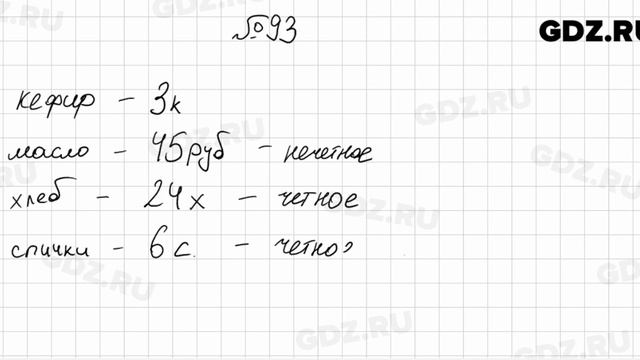 №93
GDZ.RU
кефир - 3к
GDZ.RU
масло - 45руб - нечетное
GDZ.RU
GDZ.RU
хлеб - 24х - четное
GDZ.RU
спички - 6с. - четно
GDZ.RU
GDZ.RU
GDZ.RU
GDZ.RU